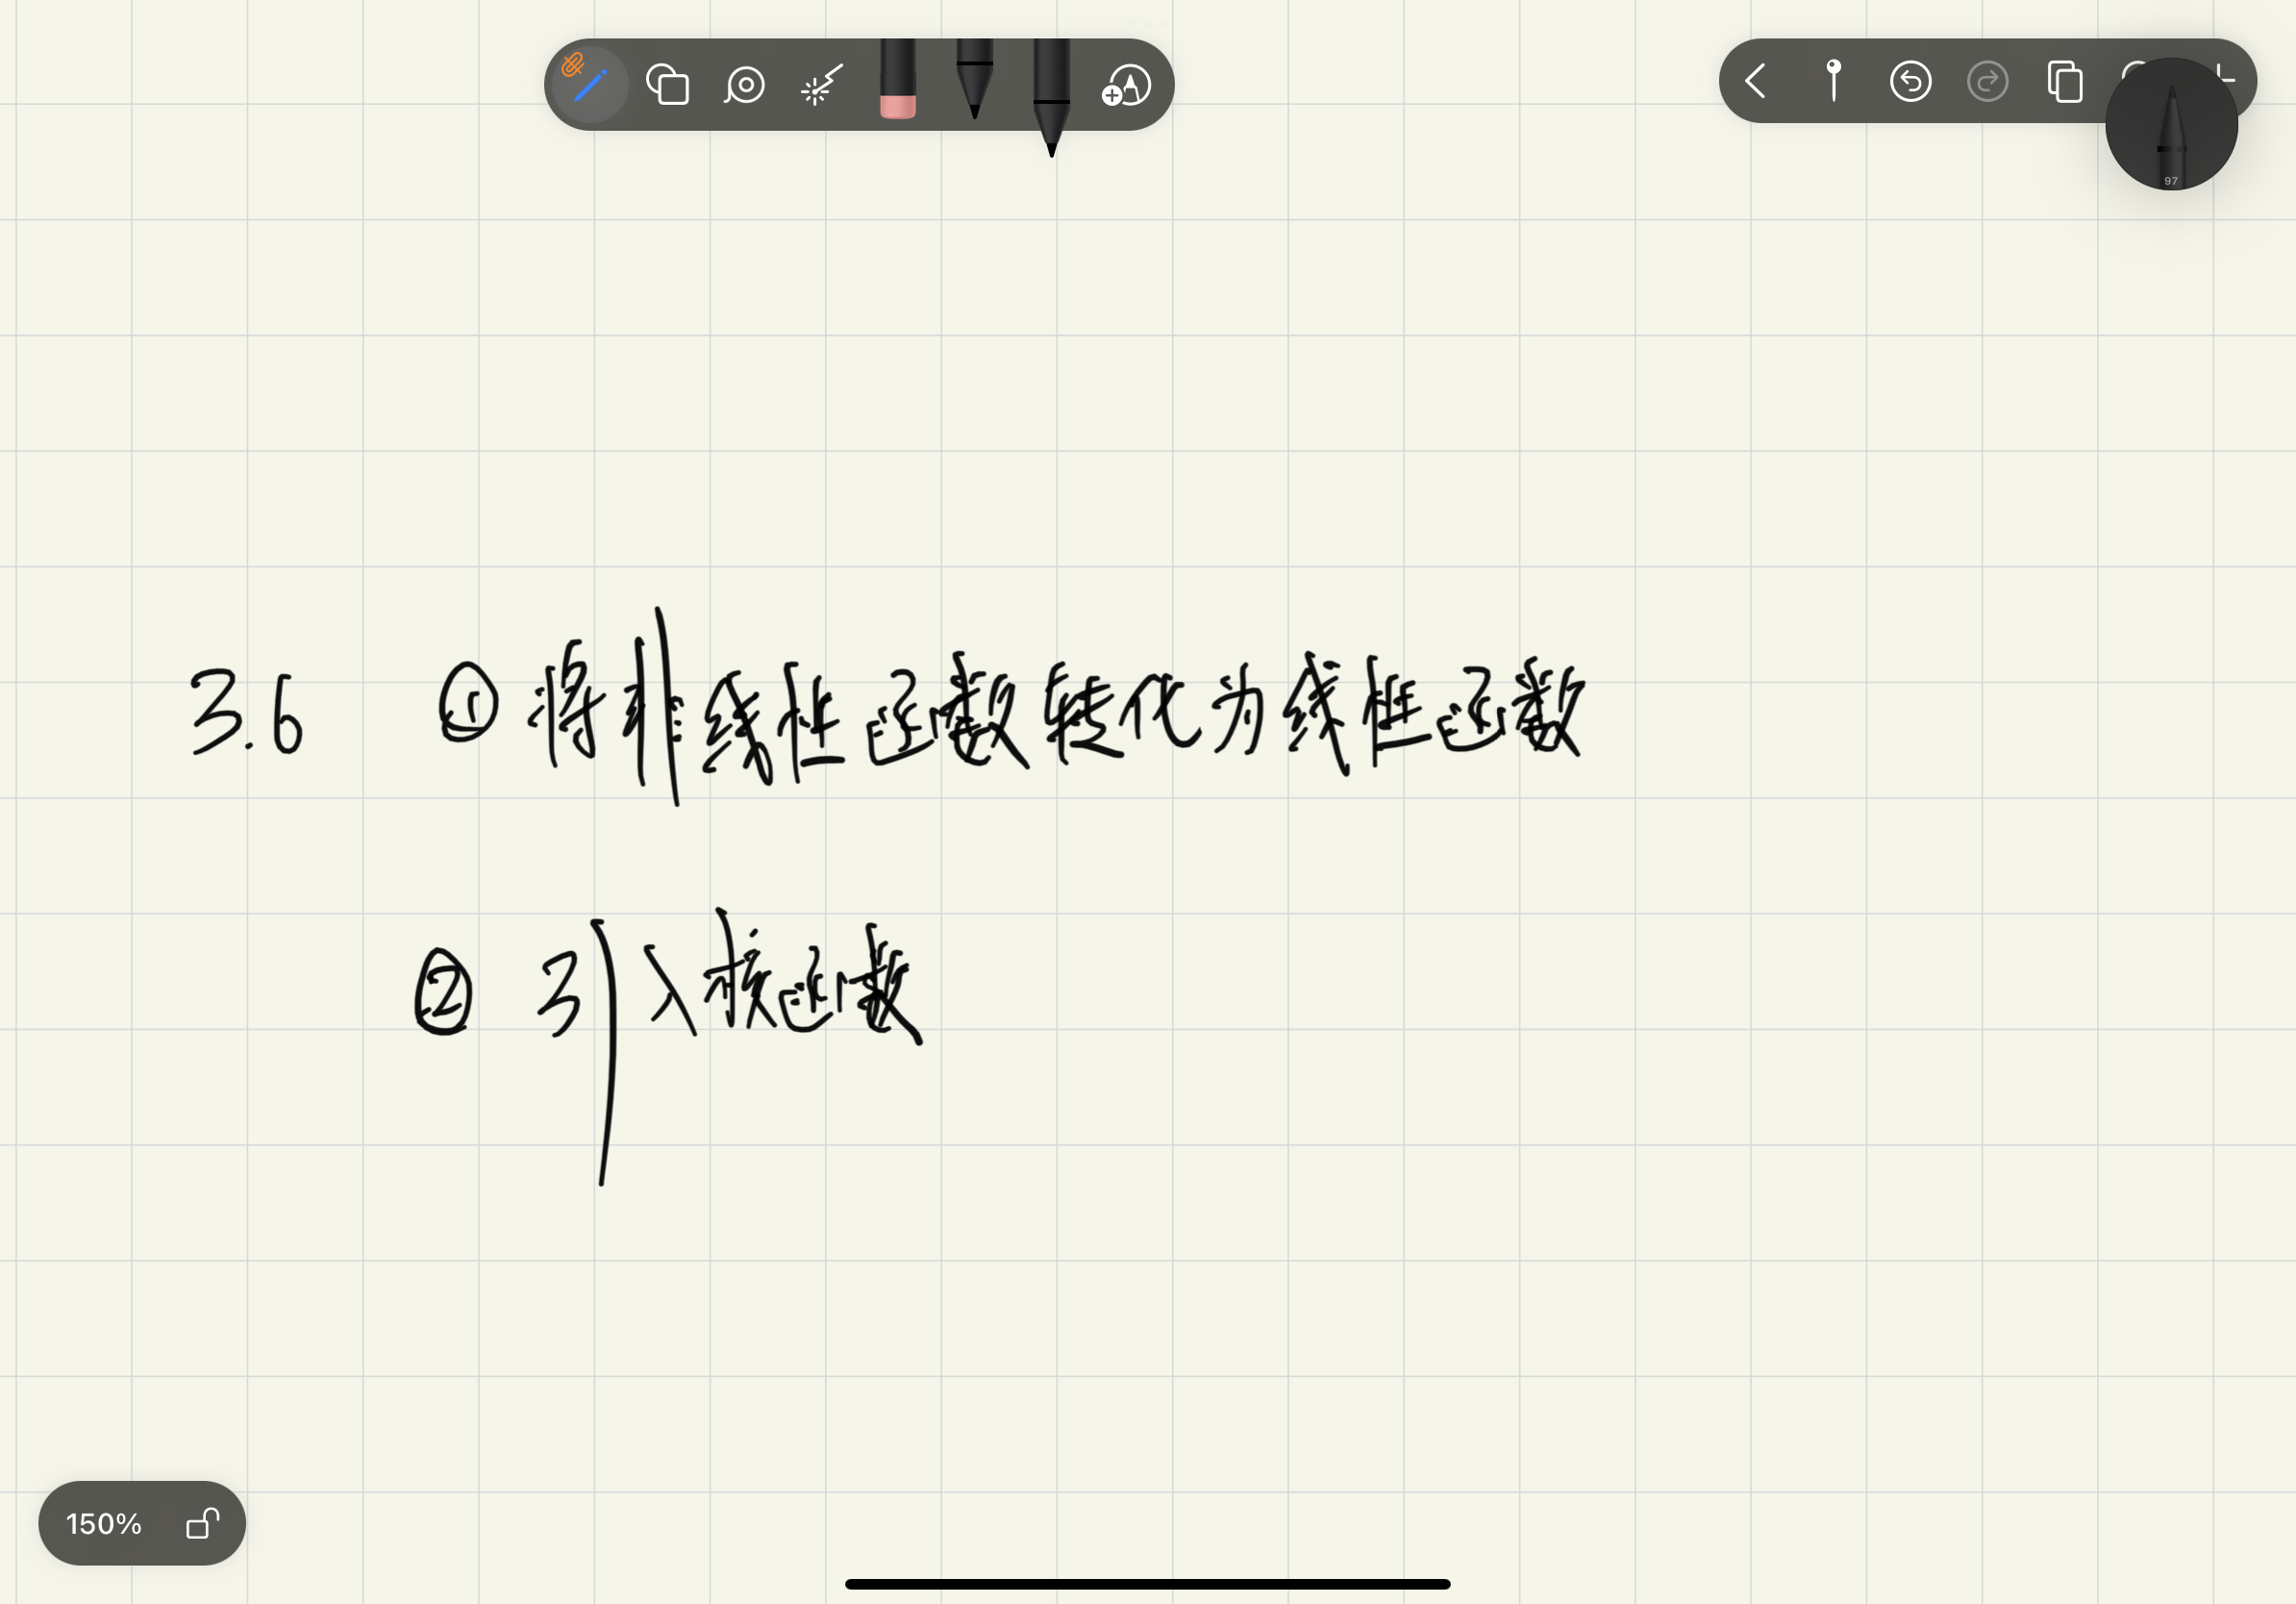 97
3.6 ① 将非线性函数转化为线性函数
② 引入核函数
150%